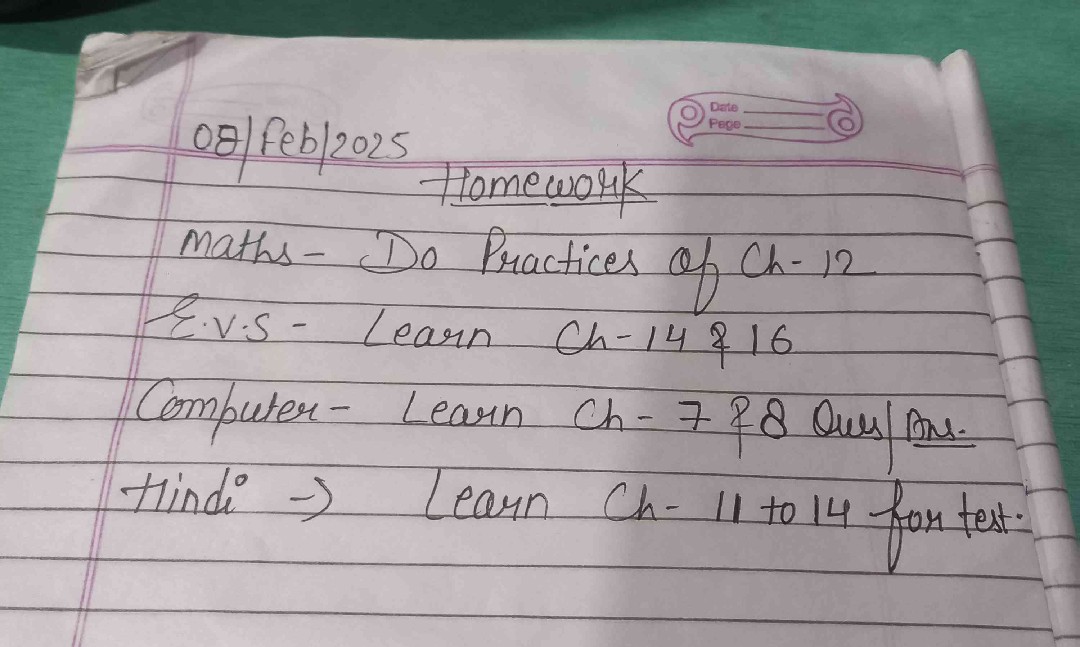 Date
Page
08/Feb/2025
Homework
Maths - Do Practices of Ch - 12
E.V.S - Learn Ch - 14 & 16
Computer - Learn Ch - 7 & 8 Ques/Ans.
Hindi → Learn Ch - 11 to 14 for test.